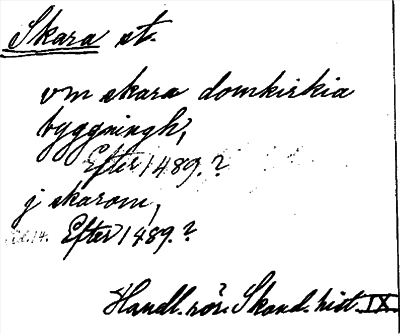 Skara st.
vm skara domkirkia
byggningh,
Efter 1489.?
j skarom,
Efter 1489.?
Handl. rör. Skand. hist. IX.